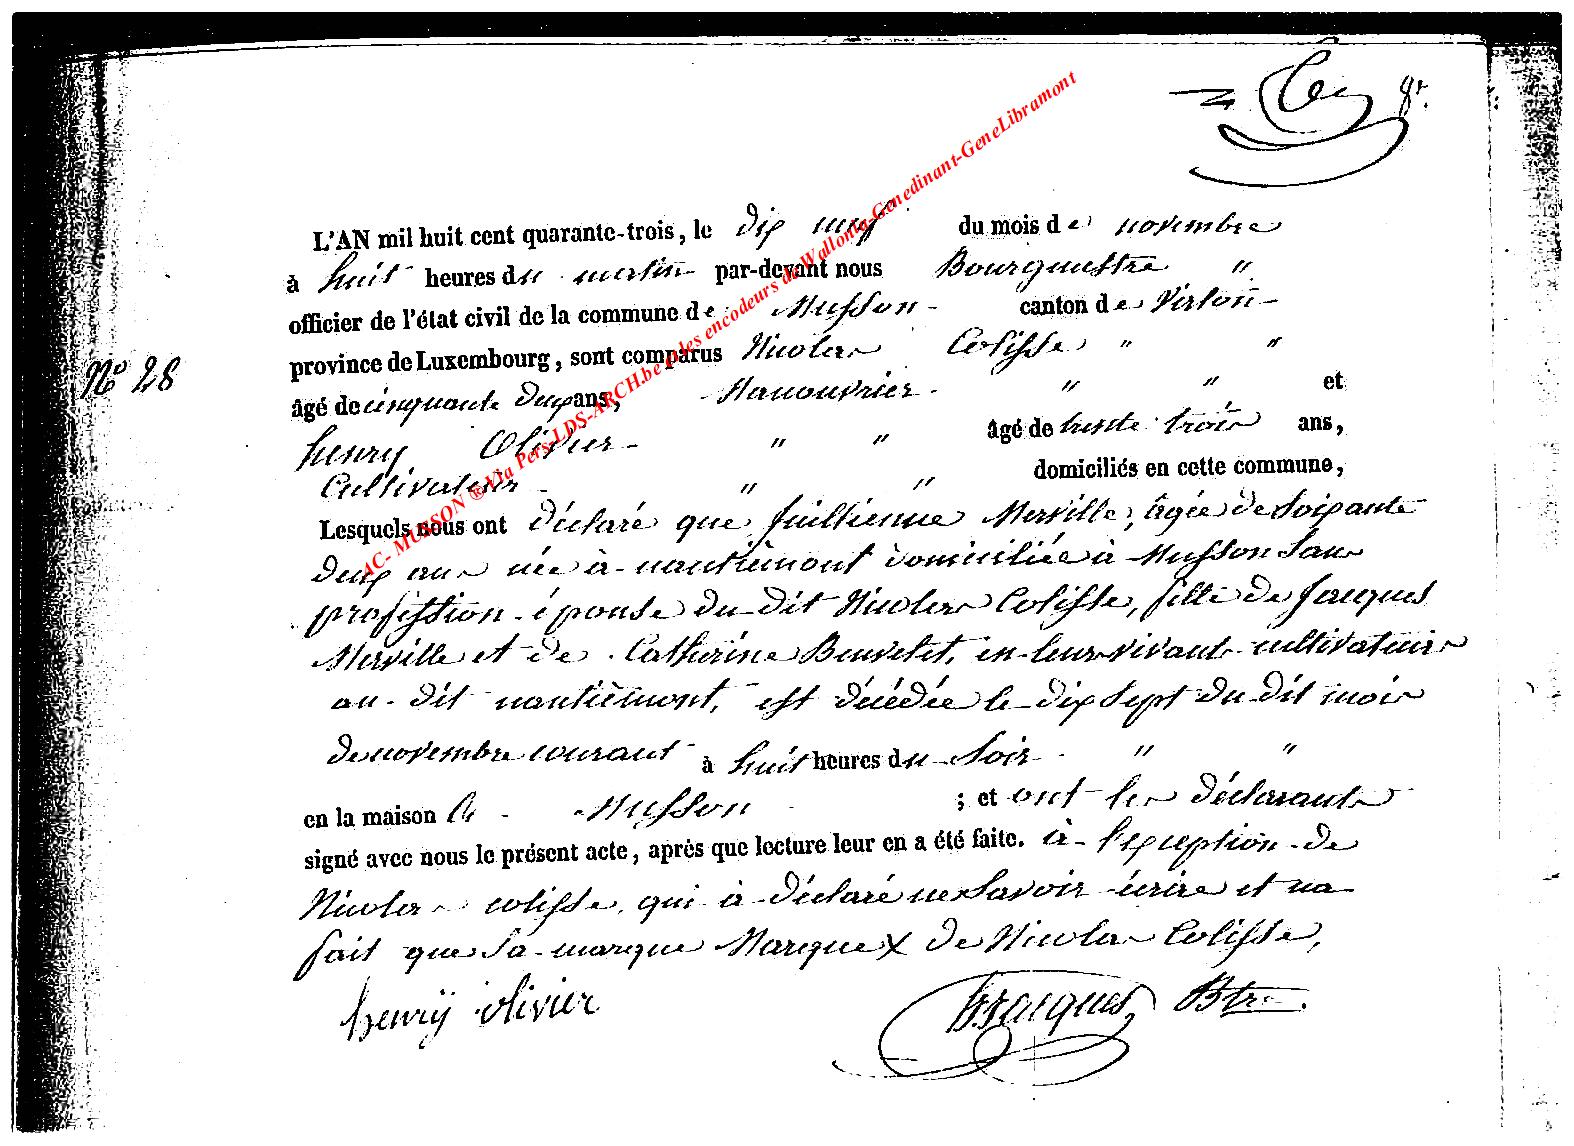 8r.
L'AN mil huit cent quarante-trois, le dix neuf du mois de novembre
à huit heures du matin par-devant nous Bourguestre "
officier de l'état civil de la commune de Musson - canton de Virton -
province de Luxembourg, sont comparus Nicolas Colisse " "
No 28
âgé de cinquante deux ans, Manouvrier - " " et
henry Olivier - " " âgé de trente trois ans,
Cultivateur - " " domiciliés en cette commune,
Lesquels nous ont déclaré que Juillienne Merville, âgée de Soixante
deux ans née à nantiémont domiciliée à Musson Sans
profession - épouse du dit Nicolas Colisse, fille de Jacques
Merville et de Catherine Beuvelet, en leur vivant cultivateurs
au dit nantiémont, est décédée le dix Sept du dit mois
de novembre courant à huit heures du Soir - " "
en la maison à - Musson ; et ont les déclarants
signé avec nous le présent acte, après que lecture leur en a été faite. à l'exception de
Nicolas colisse, qui à déclaré ne Savoir écrire et na
fait que Sa marque Marque X de Nicolas Colisse,
henrÿ olivier Jacques, Btre
AC- MUSSON ® Via Pers-LDS-ARCH.be et des encodeurs de Wallonia-Genedinant-GeneLibramont